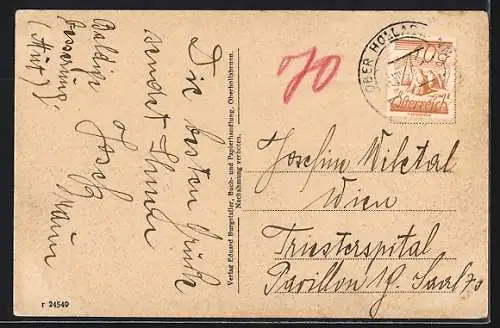 Baldige
Besserung!
(Hut)!
Die besten Grüße
sendet Ihnen
Josef
Verlag Eduard Burgstaller, Buch- und Papierhandlung, Oberhollabrunn.
Nachahmung verboten.
r 24549
70
OBER HOLLAB
10g
Österreich
Wien
Triesterspital
Pavillon 19. Saal 70